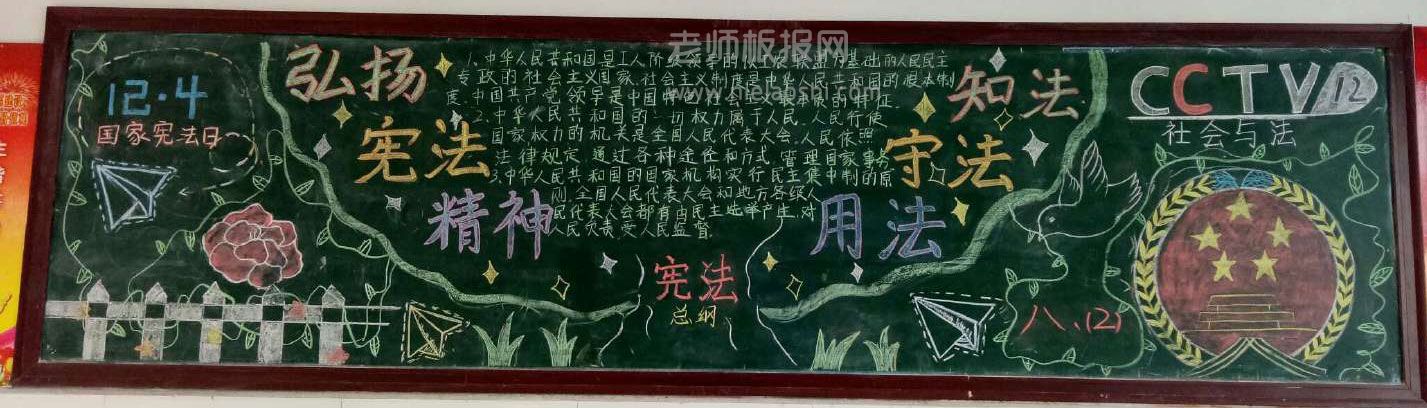 12.4
国家宪法日
弘扬
宪法
精神
老师板报网
www.jielaoshi.com
1.中华人民共和国是工人阶级领导的以工农联盟为基础的人民民主
专政的社会主义国家.社会主义制度是中华人民共和国的根本制
度.中国共产党领导是中国特色社会主义最本质的特征.
2.中华人民共和国的一切权力属于人民.人民行使
国家权力的机关是全国人民代表大会.人民依照
法律规定,通过各种途径和方式,管理国家事务
3.中华人民共和国的国家机构实行民主集中制的原
则.全国人民代表大会和地方各级人
民代表大会都有由民主选举产生.对
人民负责受人民监督.
宪法
总纲
知法
守法
用法
CCTV 12
社会与法
八.(2)